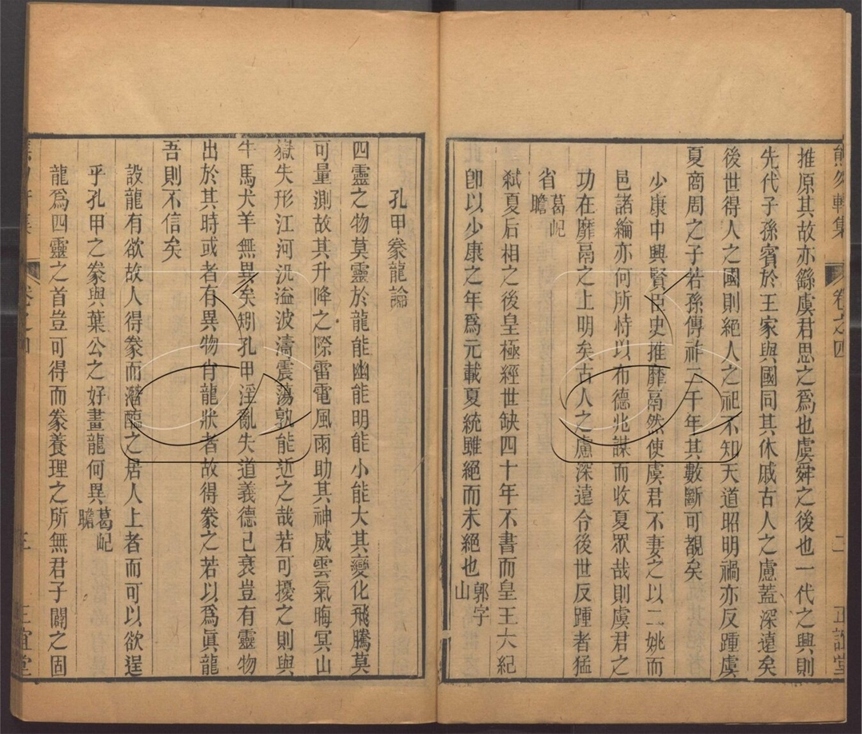 熊勿軒集 卷之四 二 正誼堂
推原其故亦繇虞君思之爲也虞舜之後也一代之興則
先代子孫賓於王家與國同其休戚古人之慮蓋深遠矣
後世得人之國則絕人之祀不知天道昭明禍亦反踵虞
夏商周之子若孫傳祚三千年其數斷可覩矣
少康中興賢臣史推靡鬲然使虞君不妻之以二姚而
邑諸綸亦何所恃以布德兆謀而收夏眾哉則虞君之
功在靡鬲之上明矣古人之慮深遠今後世反踵者猛
省 葛屺瞻
弑夏后相之後皇極經世缺四十年不書而皇王大紀
卽以少康之年爲元載夏統雖絕而未絕也 郭字山
孔甲豢龍論
四靈之物莫靈於龍能幽能明能小能大其變化飛騰莫
可量測故其升降之際雷電風雨助其神威雲氣晦冥山
嶽失形江河汎溢波濤震蕩孰能近之哉若可擾之則與
牛馬犬羊無異矣矧孔甲淫亂失道義德已衰豈有靈物
出於其時或者有異物自龍狀者故得豢之若以爲眞龍
吾則不信矣
設龍有欲故人得豢而潛醢之居人上者而可以欲逞
乎孔甲之豢與葉公之好畫龍何異 葛屺瞻
龍爲四靈之首豈可得而豢養理之所無君子闢之固
卷之四 三 正誼堂